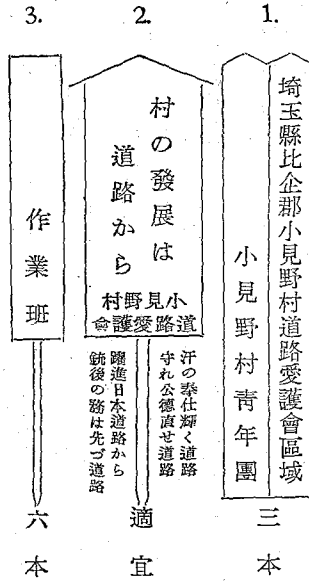 1.
埼玉縣比企郡小見野村道路愛護會區域
小見野村青年團
三本
2.
村の發展は
道路から
小見野村
道路愛護會
汗の奉仕輝く道路
守れ公德直せ道路
躍進日本道路から
銃後の務は先づ道路
適宜
3.
作業班
六本